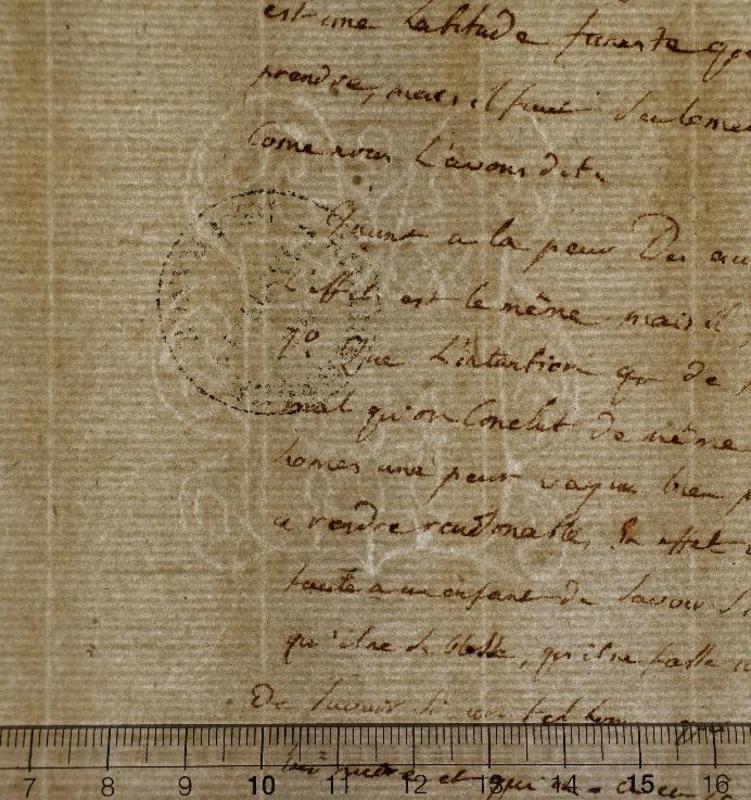 est une habitude funeste que
prendre, mais il faut seulemen
Come nous l'avons dit.
Quant a la peur Des au
L'effet est le même mais il
1º Que L'intention qu de
mal qu'on Conclut de même
homes une peur vague bien p
a rendre raisonable. En effet
faute a un enfant de savoir S
qu'il ne se blesse, qu'il ne fasse
De savoir si un tel hom
et qui
7 8 9 10 11 12 13 14 15 16